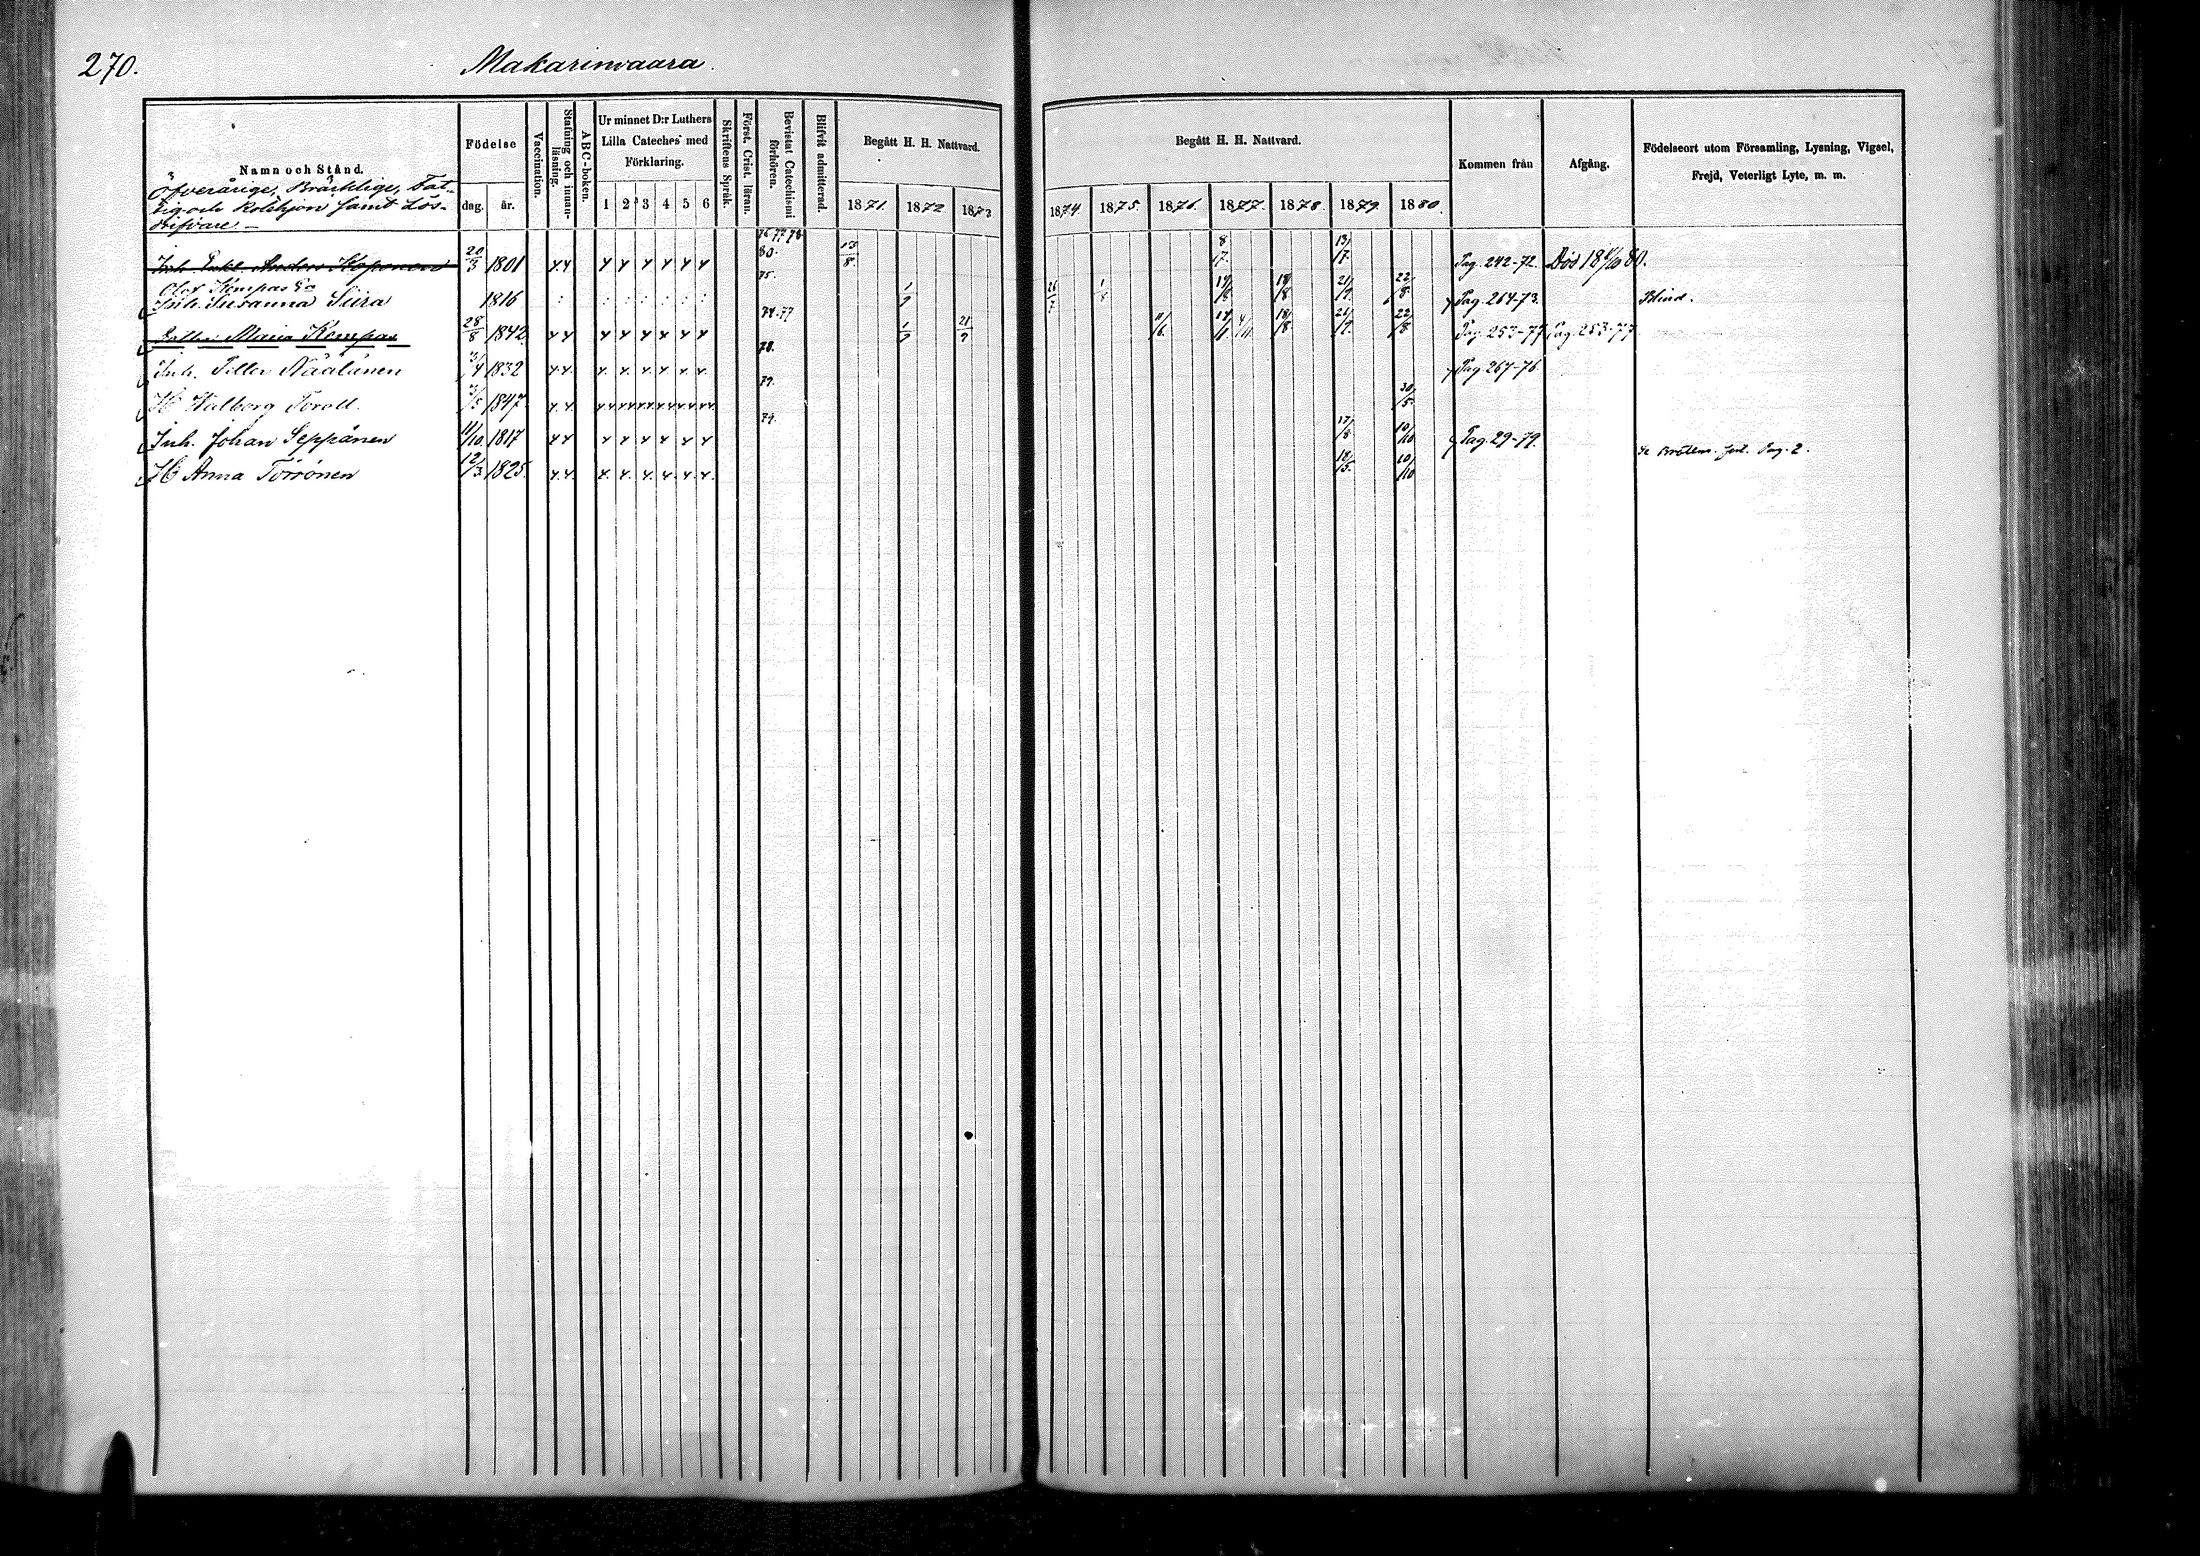 270.
Makarinvaara.
Namn och Stånd.
Födelse
dag. år.
Vaccination.
Stafning och innan-läsning.
ABC-boken.
Ur minnet D:r Luthers
Lilla Cateches med
Förklaring.
1 2 3 4 5 6
Skriftens Språk.
Först. Crist. läran.
Bevistat Catechismi förhören.
Blifvit admitterad.
Begått H. H. Nattvard.
1871. 1872 1873
Begått H. H. Nattvard.
1874 1875. 1876. 1877. 1878. 1879 1880.
Kommen från
Afgång.
Födelseort utom Församling, Lysning, Vigsel,
Frejd, Veterligt Lyte, m. m.
Öfverårige, Bräcklige, Fat-
tig och Rotehjon samt Lös-
drifvare —
Inh. Enkl. Anders Koponen 20/3 1801 76 77 78 80. 13/8 8/7. 13/7. Pag. 242-72. Död 80.
Olof Kempas Ea
Inh. Susanna Siira 1816 75. 1/9 26/7 18/8 21/9. 22/8. Pag. 264-73. Blind.
Maria Kempas 28/8 1842 74.77 1/9 21/9 11/6. 18/8 22/8 Pag. 253-77. Pag. 253-77
Inh. Näätänen 3/4 1832 78. Pag. 267-76.
H Walborg 3/5 1847 79. 30/5
Inh. Johan Seppänen 11/10. 1817 79. 17/8 10/10 Pag. 29-79. Pag. 2.
H Anna Törrönen 12/3. 1825. 18/5. 10/10